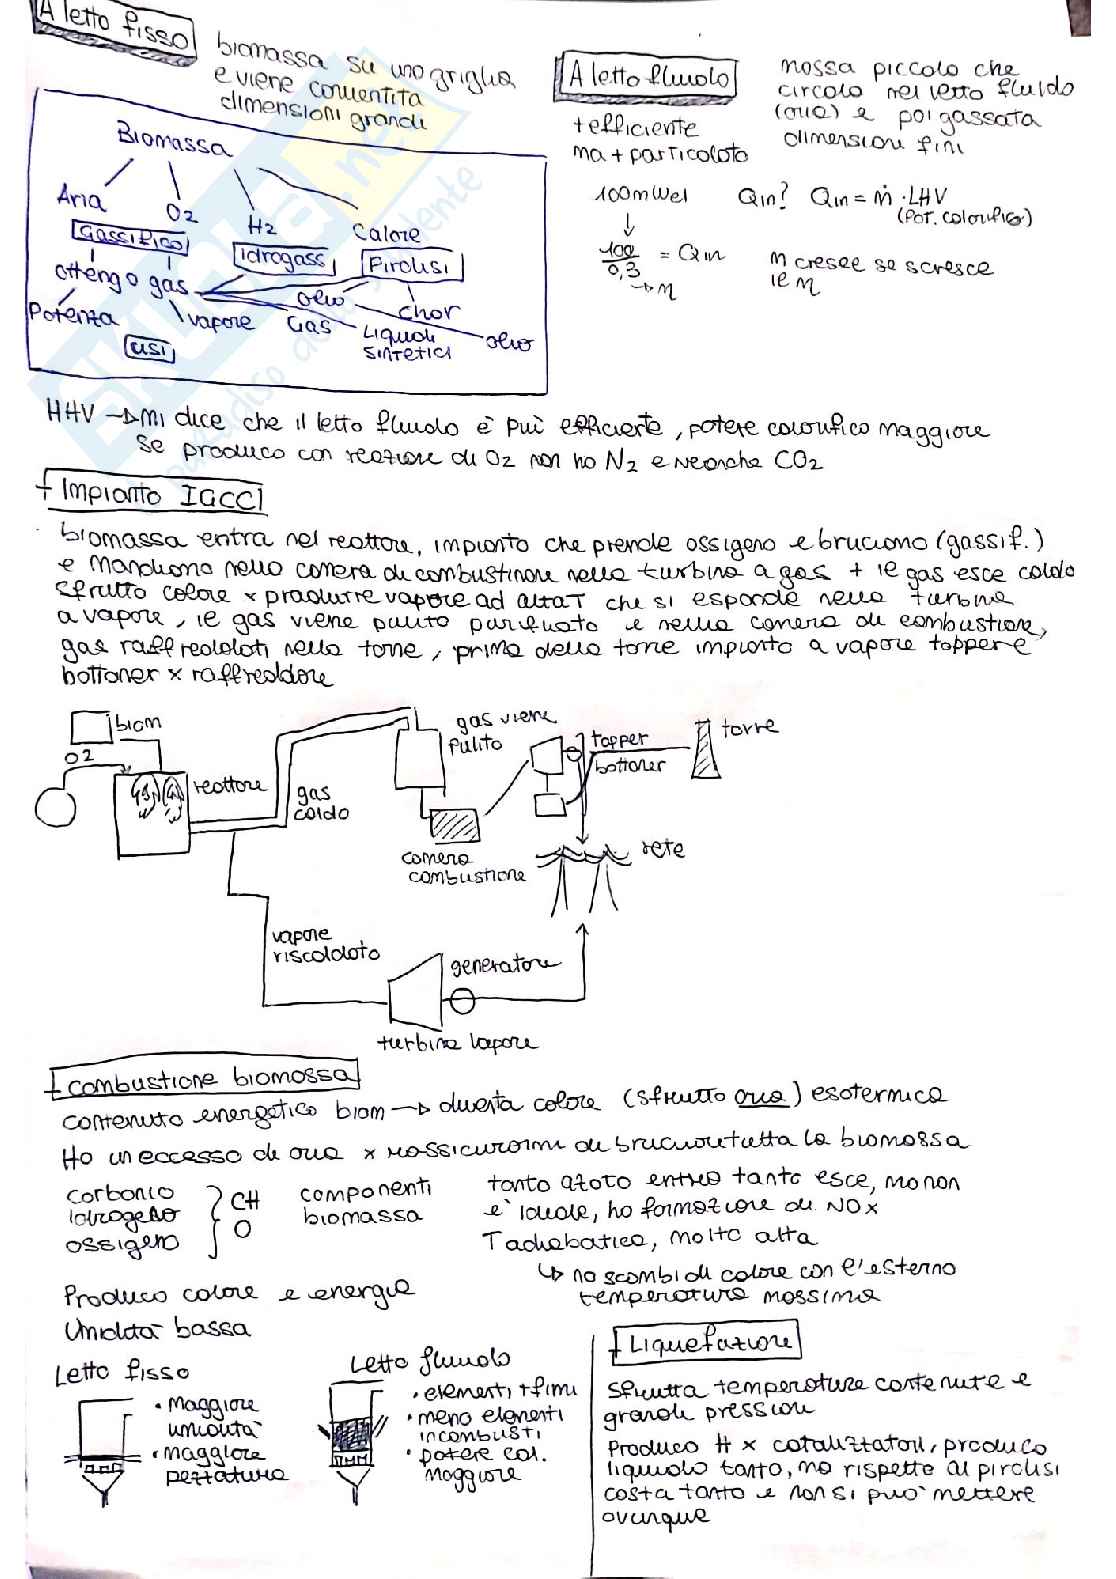 A letto fisso
biomassa su una griglia
e viene convertita
dimensioni grandi
Biomassa
Aria
O2
H2
Calore
Gassifico
Idrogass
Pirolisi
ottengo gas
olio
Char
Potenza
vapore
Gas
Liquidi
sintetici
olio
usi
A letto fluido
+ efficiente
ma + particolato
massa piccola che
circola nel letto fluido
(aria) e poi gassata
dimensioni fini
100 MWel
Qin? Qin = ṁ · LHV
(Pot. calorifico)
100/0,3 = Qin
→ η
η cresce se cresce
il η
HHV → Mi dice che il letto fluido è più efficiente, potere calorifico maggiore
se produco con reazione di O2 non ho N2 e neanche CO2
+ Impianto IGCC
biomassa entra nel reattore, impianto che prende ossigeno e bruciano (gassif.)
e mandiamo nella camera di combustione nella turbina a gas + il gas esce caldo
sfrutto calore x produrre vapore ad alta T che si espande nella turbina
a vapore, il gas viene pulito purificato e nella camera di combustione,
gas raffreddati nella torre, prima della torre impianto a vapore topper e
bottomer x raffreddare
biom
O2
reattore
gas
caldo
gas viene
pulito
topper
bottomer
torre
camera
combustione
rete
vapore
riscaldato
generatore
turbina vapore
+ combustione biomassa
contenuto energetico biom → diventa calore (sfrutto aria) esotermica
Ho un eccesso di aria x rassicurarmi di bruciare tutta la biomassa
carbonio
idrogeno
ossigeno
CH
O
componenti
biomassa
tanto azoto entra tanto esce, ma non
è ideale, ho formazione di NOx
T adiabatica, molto alta
↳ no scambi di calore con l'esterno
temperatura massima
Produco calore e energia
Umidità bassa
Letto fisso
• maggiore
umidità
• maggiore
pezzatura
Letto fluido
• elementi + fini
• meno elementi
incombusti
• potere cal.
maggiore
+ Liquefazione
sfrutta temperature contenute e
grandi pressioni
Produco H x catalizzatori, produco
liquido tanto, ma rispetto al pirolisi
costa tanto e non si può mettere
ovunque